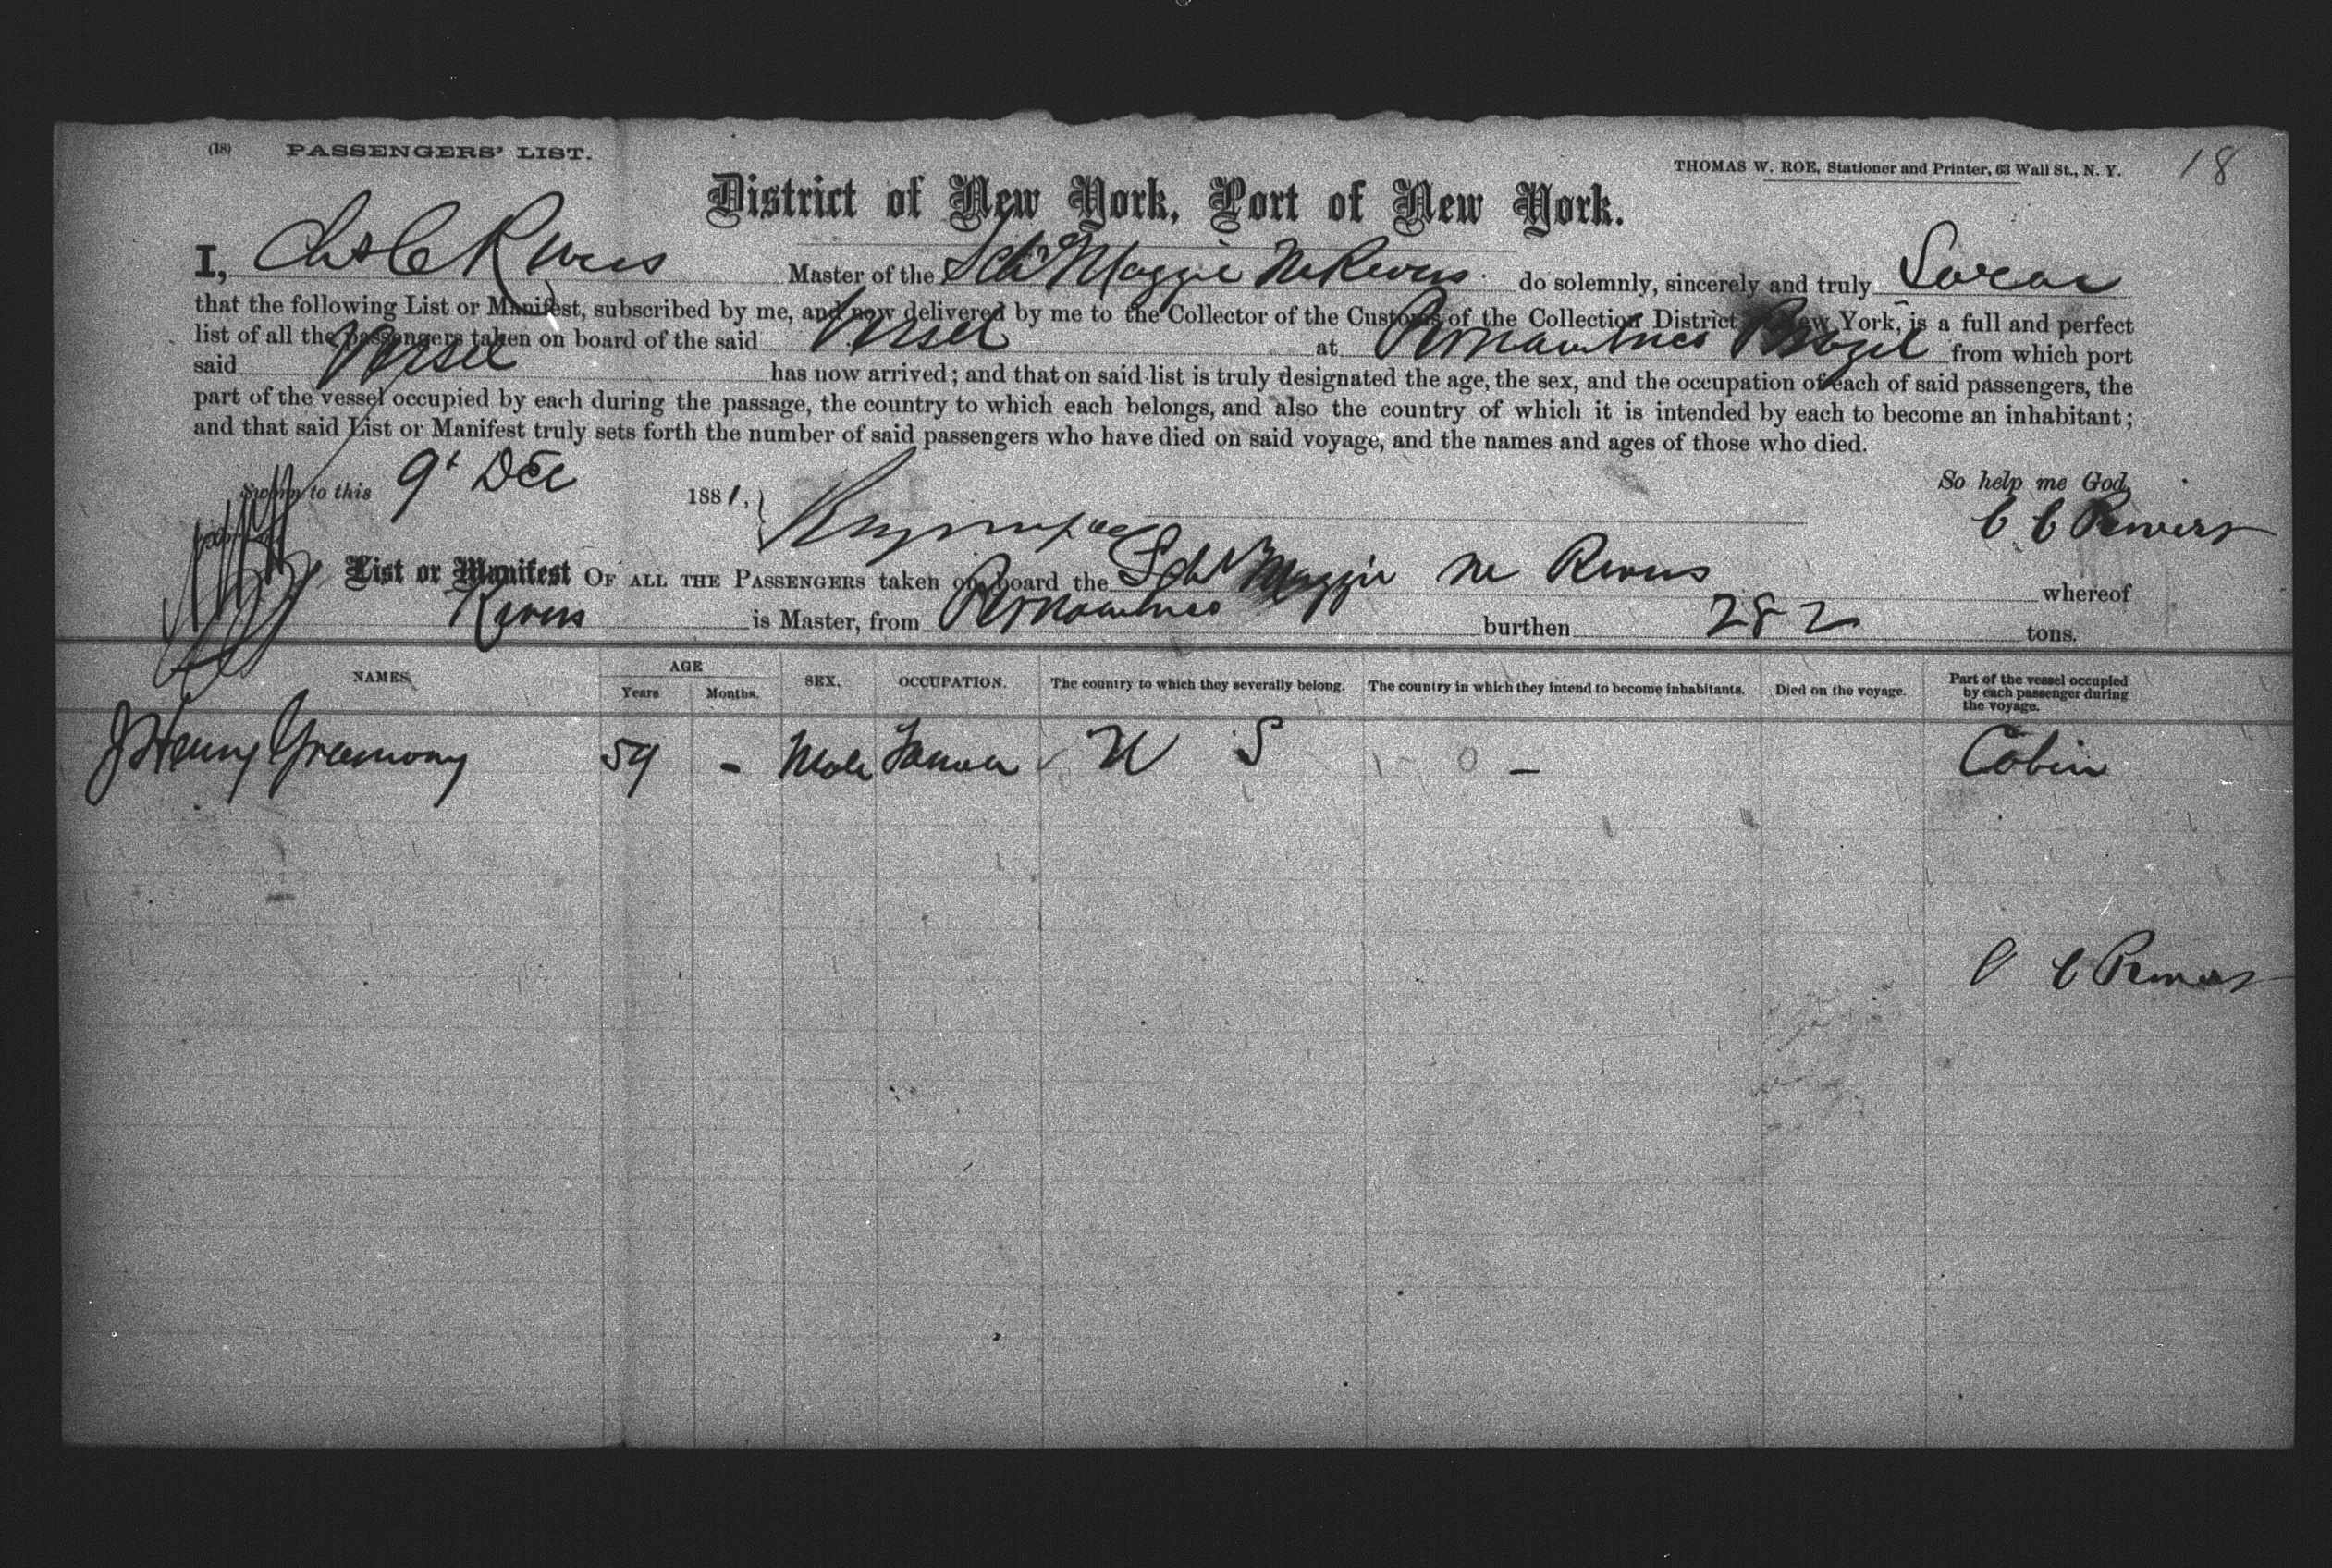 (18) PASSENGERS' LIST.
THOMAS W. ROE, Stationer and Printer, 63 Wall St., N. Y. 18
District of New York, Port of New York.
I, Chs C Rivers Master of the Schr Maggie M Rivers do solemnly, sincerely and truly Swear
that the following List or Manifest, subscribed by me, and now delivered by me to the Collector of the Customs of the Collection District New York, is a full and perfect
list of all the passengers taken on board of the said Vessel at Brazil from which port
said Vessel has now arrived; and that on said list is truly designated the age, the sex, and the occupation of each of said passengers, the
part of the vessel occupied by each during the passage, the country to which each belongs, and also the country of which it is intended by each to become an inhabitant;
and that said List or Manifest truly sets forth the number of said passengers who have died on said voyage, and the names and ages of those who died.
Sworn to this 9t Dec 1881, So help me God.
C C Rivers
List or Manifest OF ALL THE PASSENGERS taken on board the Schr Maggie M Rivers whereof
Rivers is Master, from burthen 282 tons.
NAMES. AGE Years Months. SEX. OCCUPATION. The country to which they severally belong. The country in which they intend to become inhabitants. Died on the voyage. Part of the vessel occupied by each passenger during the voyage.
J Henry 59 - Male U S - Cabin
C C Rivers